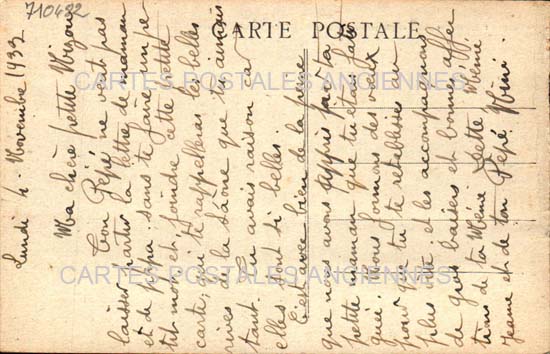 710482
CARTE POSTALE
CARTES POSTALES ANCIENNES
CARTES POSTALES ANCIENNES
Lundi 4 Novembre 1933
Ma chère petite
Ton Pépé ne veut pas
laisser partir la lettre de maman
et de papa sans te faire un pe
tit mot et joindre cette petite
carte, qui te rappellera les belles
rives de la Saône que tu aimais
tant. Tu avais raison car
elles sont si belles.
C'est avec bien de la peine
que nous avons appris par ta
petite maman que tu étais fati
guée. Nous formons des vœux
pour que tu te rétablisses au
plus vite et les accompagnons
de gros baisers et bonnes affec
tions de ta Mémé, dette Mémé
Jeanne et de ton Pépé